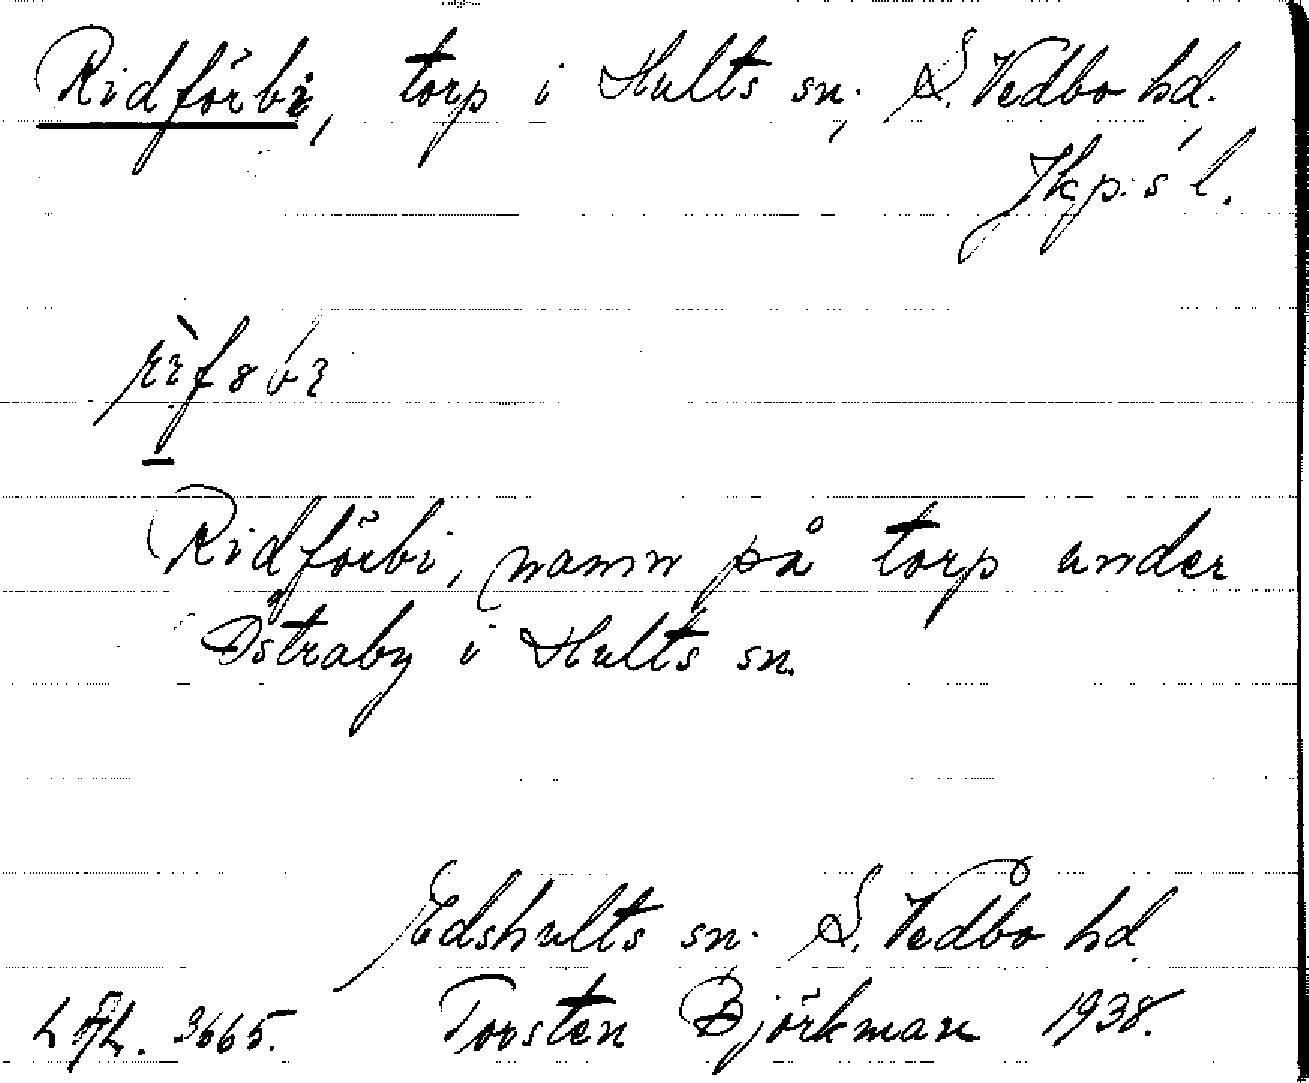 Ridförbi, torp i Hults sn, S. Vedbo hd.
Jkp:s l.
Ridförbi, namn på torp under
Östraby i Hults sn.
Edshults sn. S. Vedbo hd.
3665. Torsten Björkman 1938.